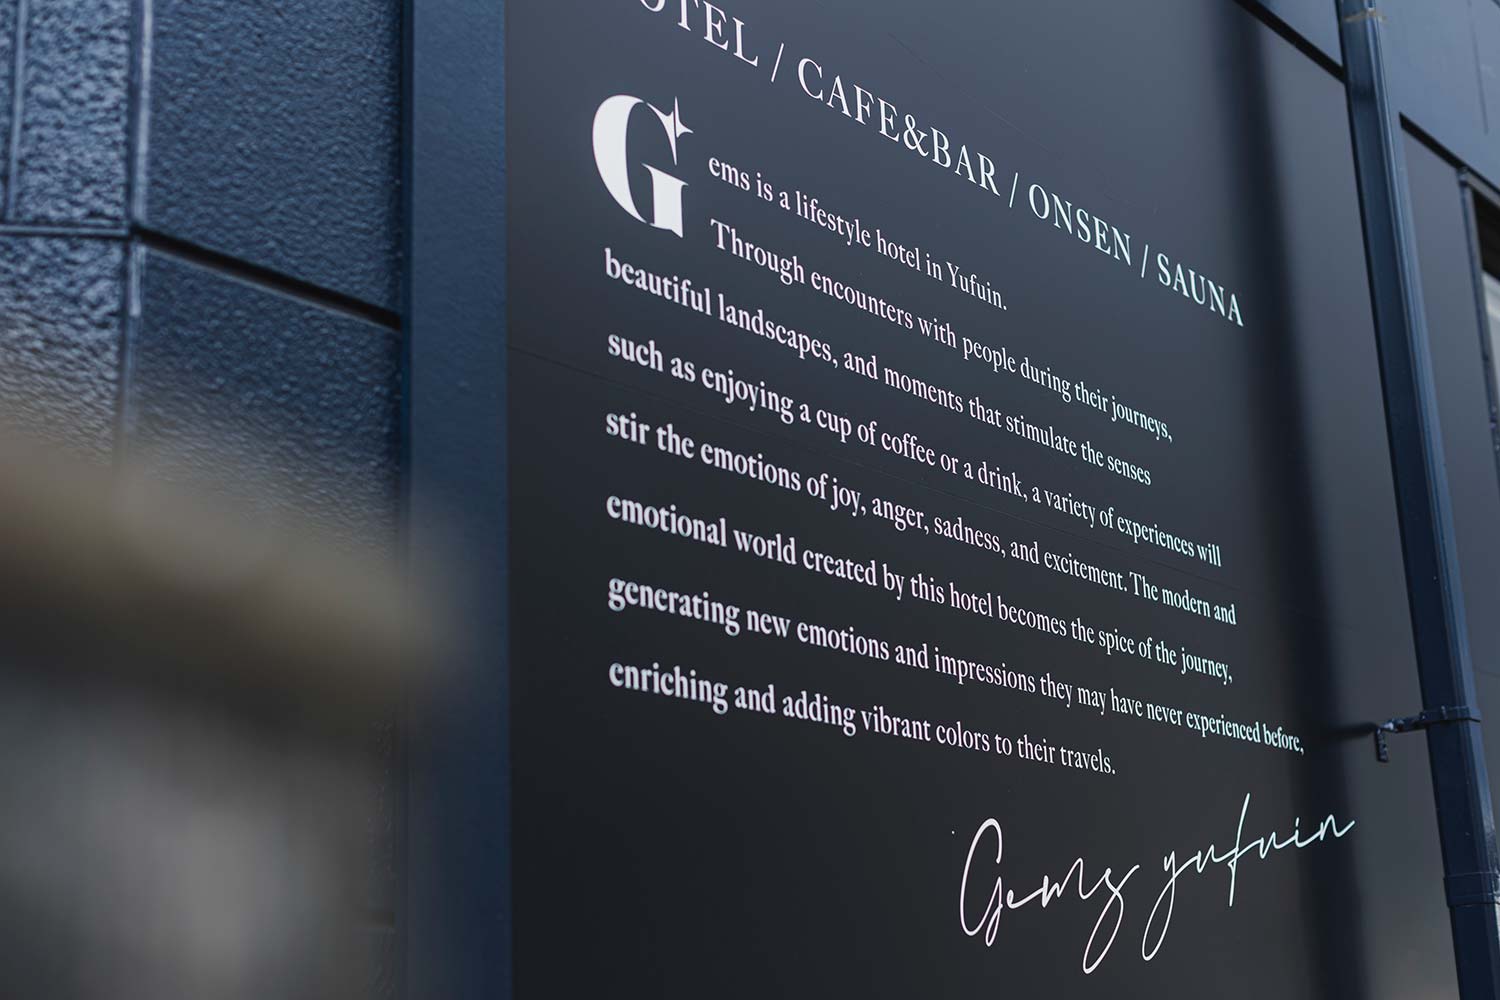 OTEL / CAFE&BAR / ONSEN / SAUNA
Gems is a lifestyle hotel in Yufuin.
Through encounters with people during their journeys,
beautiful landscapes, and moments that stimulate the senses
such as enjoying a cup of coffee or a drink, a variety of experiences will
stir the emotions of joy, anger, sadness, and excitement. The modern and
emotional world created by this hotel becomes the spice of the journey,
generating new emotions and impressions they may have never experienced before,
enriching and adding vibrant colors to their travels.
Gems yufuin